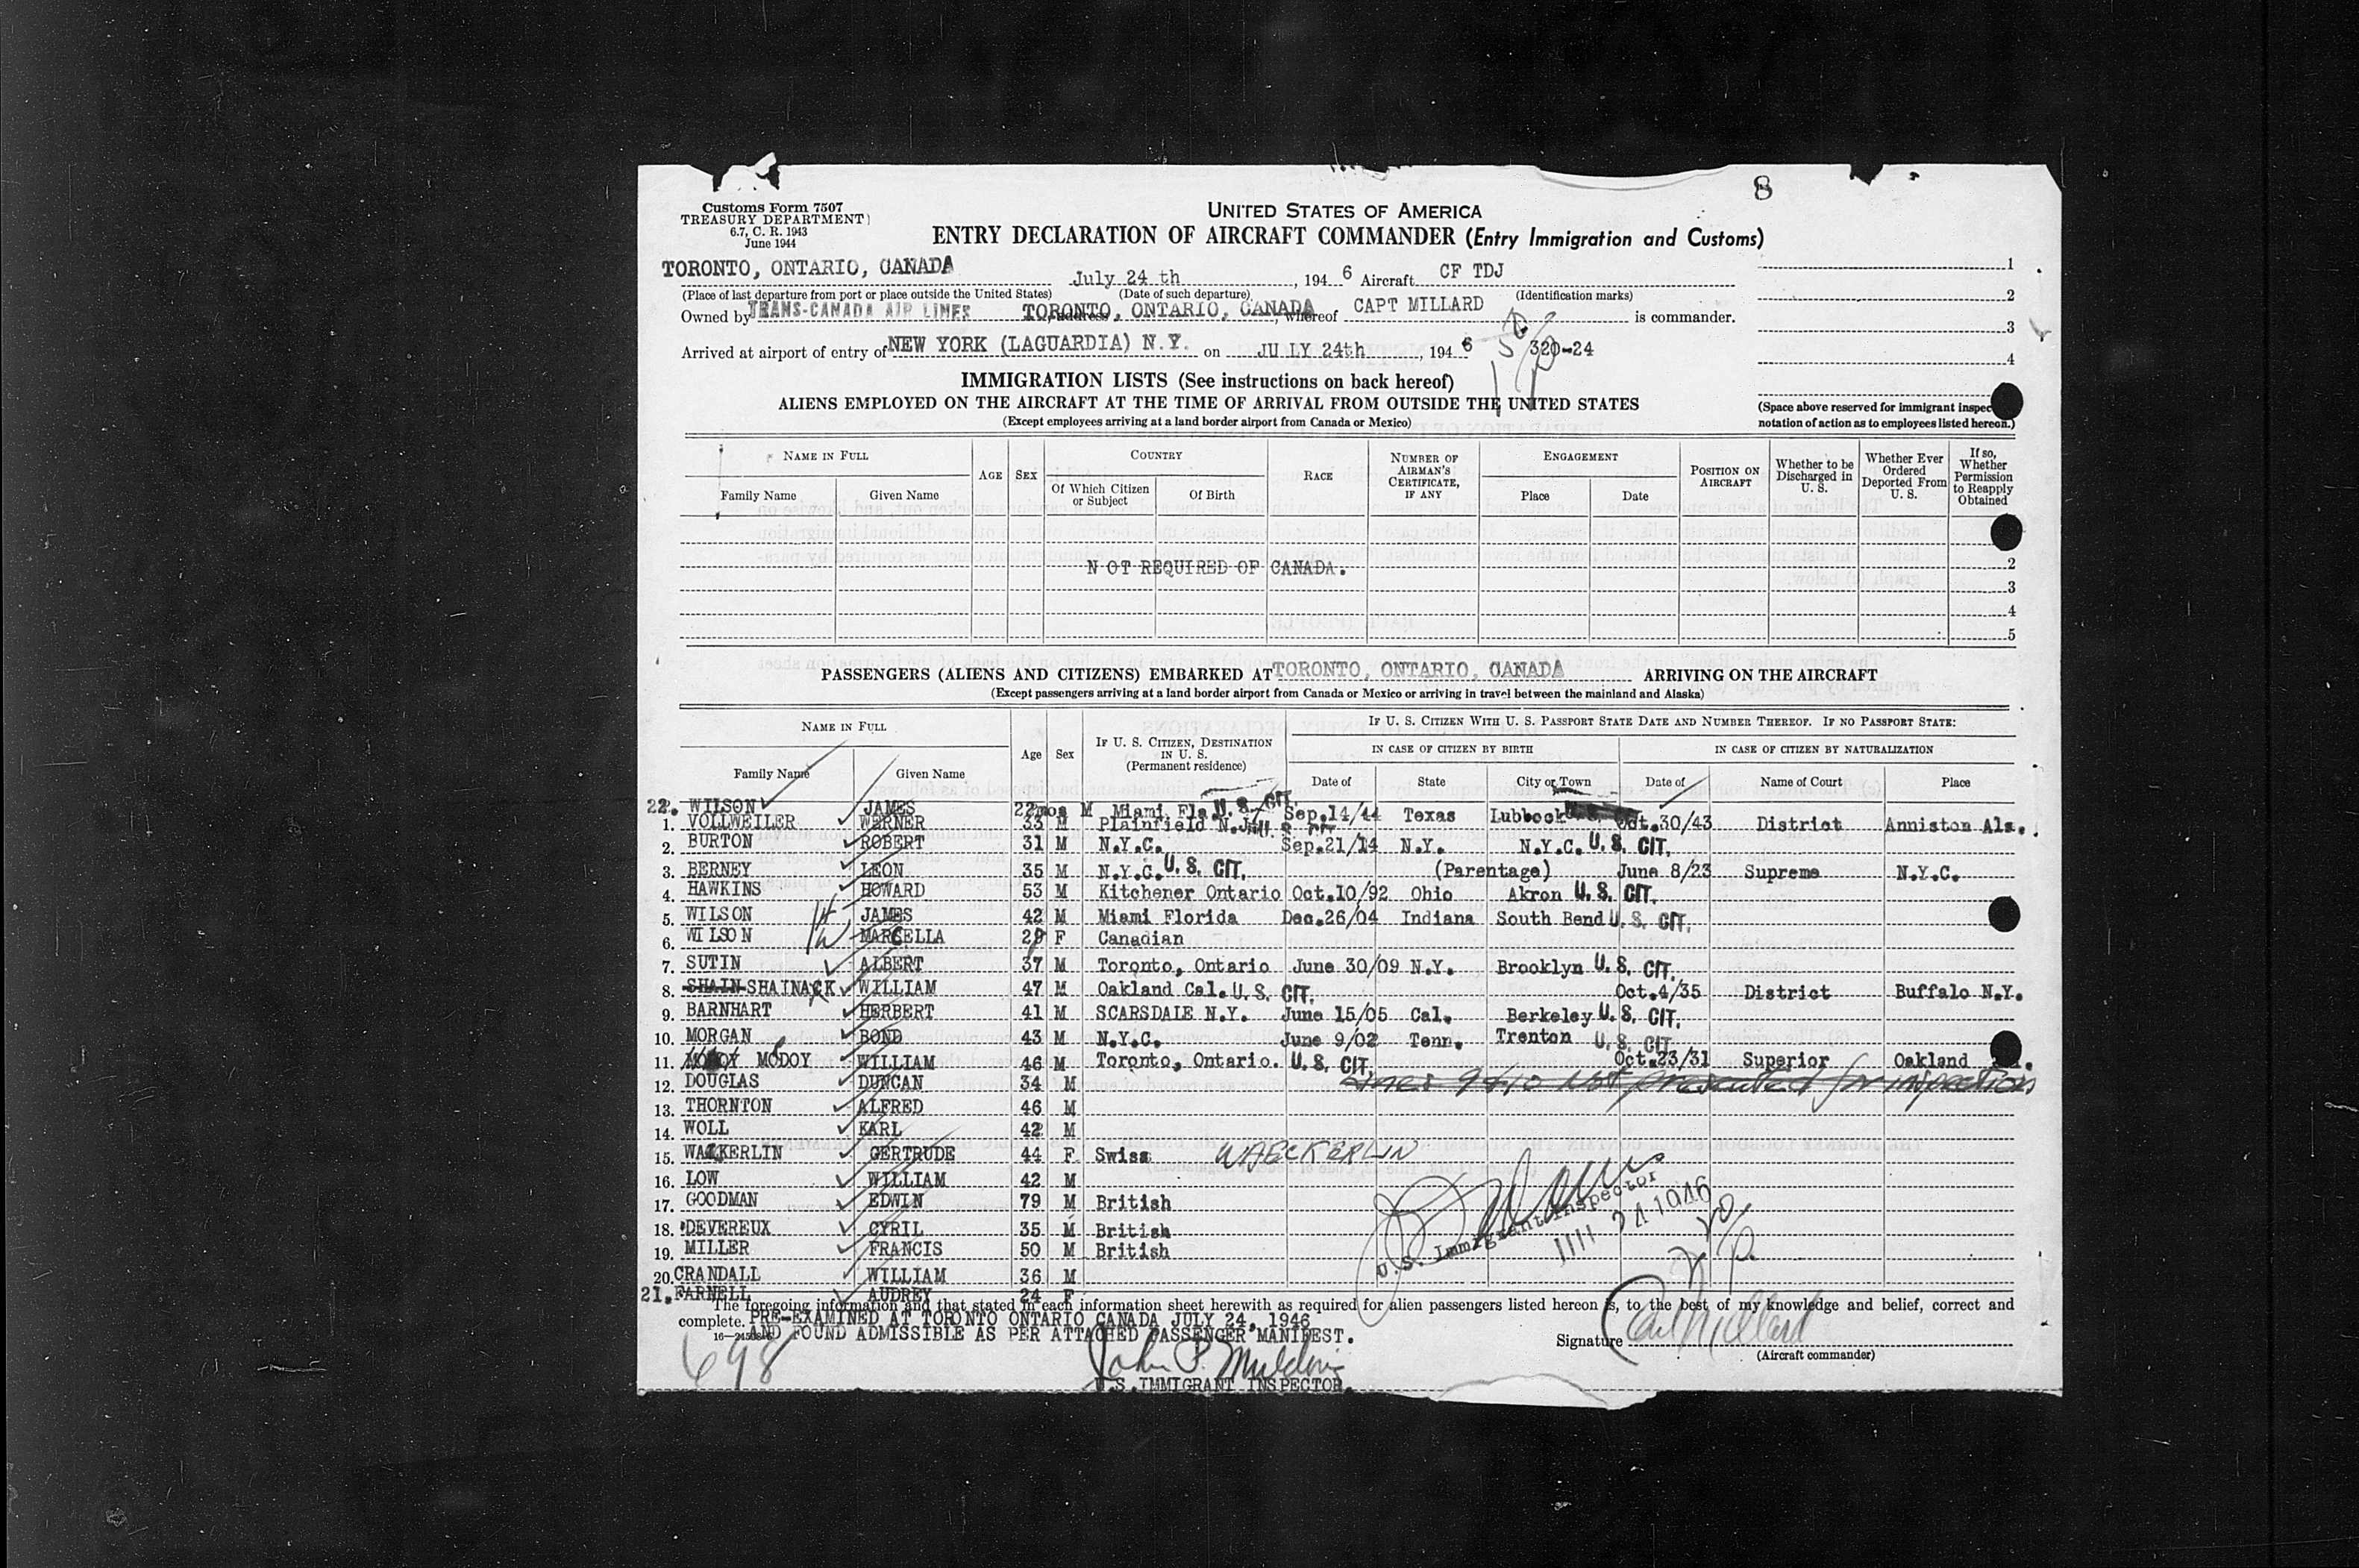 8
Customs Form 7507
TREASURY DEPARTMENT
6.7, C. R. 1943
June 1944
UNITED STATES OF AMERICA
ENTRY DECLARATION OF AIRCRAFT COMMANDER (Entry Immigration and Customs)
TORONTO, ONTARIO, CANADA July 24 th, 194 6 Aircraft CF TDJ
(Place of last departure from port or place outside the United States) (Date of such departure) (Identification marks)
Owned by TRANS-CANADA AIR LINES TORONTO, ONTARIO, CANADA, whereof CAPT MILLARD is commander.
Arrived at airport of entry of NEW YORK (LAGUARDIA) N.Y. on JULY 24th, 194 6 320-24
1
2
3
4
(Space above reserved for immigrant inspec
notation of action as to employees listed hereon.)
IMMIGRATION LISTS (See instructions on back hereof)
ALIENS EMPLOYED ON THE AIRCRAFT AT THE TIME OF ARRIVAL FROM OUTSIDE THE UNITED STATES
(Except employees arriving at a land border airport from Canada or Mexico)
NAME IN FULL AGE SEX COUNTRY RACE NUMBER OF AIRMAN'S CERTIFICATE, IF ANY ENGAGEMENT POSITION ON AIRCRAFT Whether to be Discharged in U. S. Whether Ever Ordered Deported From U. S. If so, Whether Permission to Reapply Obtained
Family Name Given Name Of Which Citizen or Subject Of Birth Place Date
N OT REQUIRED OF CANADA.
2
3
4
5
PASSENGERS (ALIENS AND CITIZENS) EMBARKED AT TORONTO, ONTARIO, CANADA ARRIVING ON THE AIRCRAFT
(Except passengers arriving at a land border airport from Canada or Mexico or arriving in travel between the mainland and Alaska)
NAME IN FULL Age Sex IF U. S. CITIZEN, DESTINATION IN U. S. (Permanent residence) IF U. S. CITIZEN WITH U. S. PASSPORT STATE DATE AND NUMBER THEREOF. IF NO PASSPORT STATE:
IN CASE OF CITIZEN BY BIRTH IN CASE OF CITIZEN BY NATURALIZATION
Family Name Given Name Date of State City or Town Date of Name of Court Place
22. WILSON JAMES 22mos M Miami, Fla. U. S. CIT. Sep.14/44 Texas Lubbock
1. VOLLWEILER WERNER 33 M Plainfield N.J. U. S. CIT. Oct.30/43 District Anniston Ala.
2. BURTON ROBERT 31 M N.Y.C. Sep.21/14 N.Y. N.Y.C. U. S. CIT.
3. BERNEY LEON 35 M N.Y.C. U. S. CIT. (Parentage) June 8/23 Supreme N.Y.C.
4. HAWKINS HOWARD 53 M Kitchener Ontario Oct.10/92 Ohio Akron U. S. CIT.
5. WILSON JAMES 42 M Miami Florida Dec.26/04 Indiana South Bend U. S. CIT.
6. WILSON MARCELLA 29 F Canadian
7. SUTIN ALBERT 37 M Toronto, Ontario June 30/09 N.Y. Brooklyn U. S. CIT.
8. SHAIN SHAINACK WILLIAM 47 M Oakland Cal. U. S. CIT. Oct.4/35 District Buffalo N.Y.
9. BARNHART HERBERT 41 M SCARSDALE N.Y. June 15/05 Cal. Berkeley U. S. CIT.
10. MORGAN BOND 43 M N.Y.C. June 9/02 Tenn. Trenton U. S. CIT.
11. MCDOY WILLIAM 46 M Toronto, Ontario. U. S. CIT. Oct.23/31 Superior Oakland
12. DOUGLAS DUNCAN 34 M Lines 9 & 10 Not presented for inspection
13. THORNTON ALFRED 46 M
14. WOLL KARL 42 M
15. WAEKERLIN GERTRUDE 44 F Swiss WAECKERLIN
16. LOW WILLIAM 42 M
17. GOODMAN EDWIN 79 M British
18. DEVEREUX CYRIL 35 M British
19. MILLER FRANCIS 50 M British
20. CRANDALL WILLIAM 36 M
21. FARNELL AUDREY 24 F
U.S. Immigrant Inspector
24 1946
The foregoing information and that stated in each information sheet herewith as required for alien passengers listed hereon is, to the best of my knowledge and belief, correct and
complete. PRE-EXAMINED AT TORONTO ONTARIO CANADA JULY 24, 1946
AND FOUND ADMISSIBLE AS PER ATTACHED PASSENGER MANIFEST.
Signature Carl Millard
(Aircraft commander)
698
U.S. IMMIGRANT INSPECTOR.